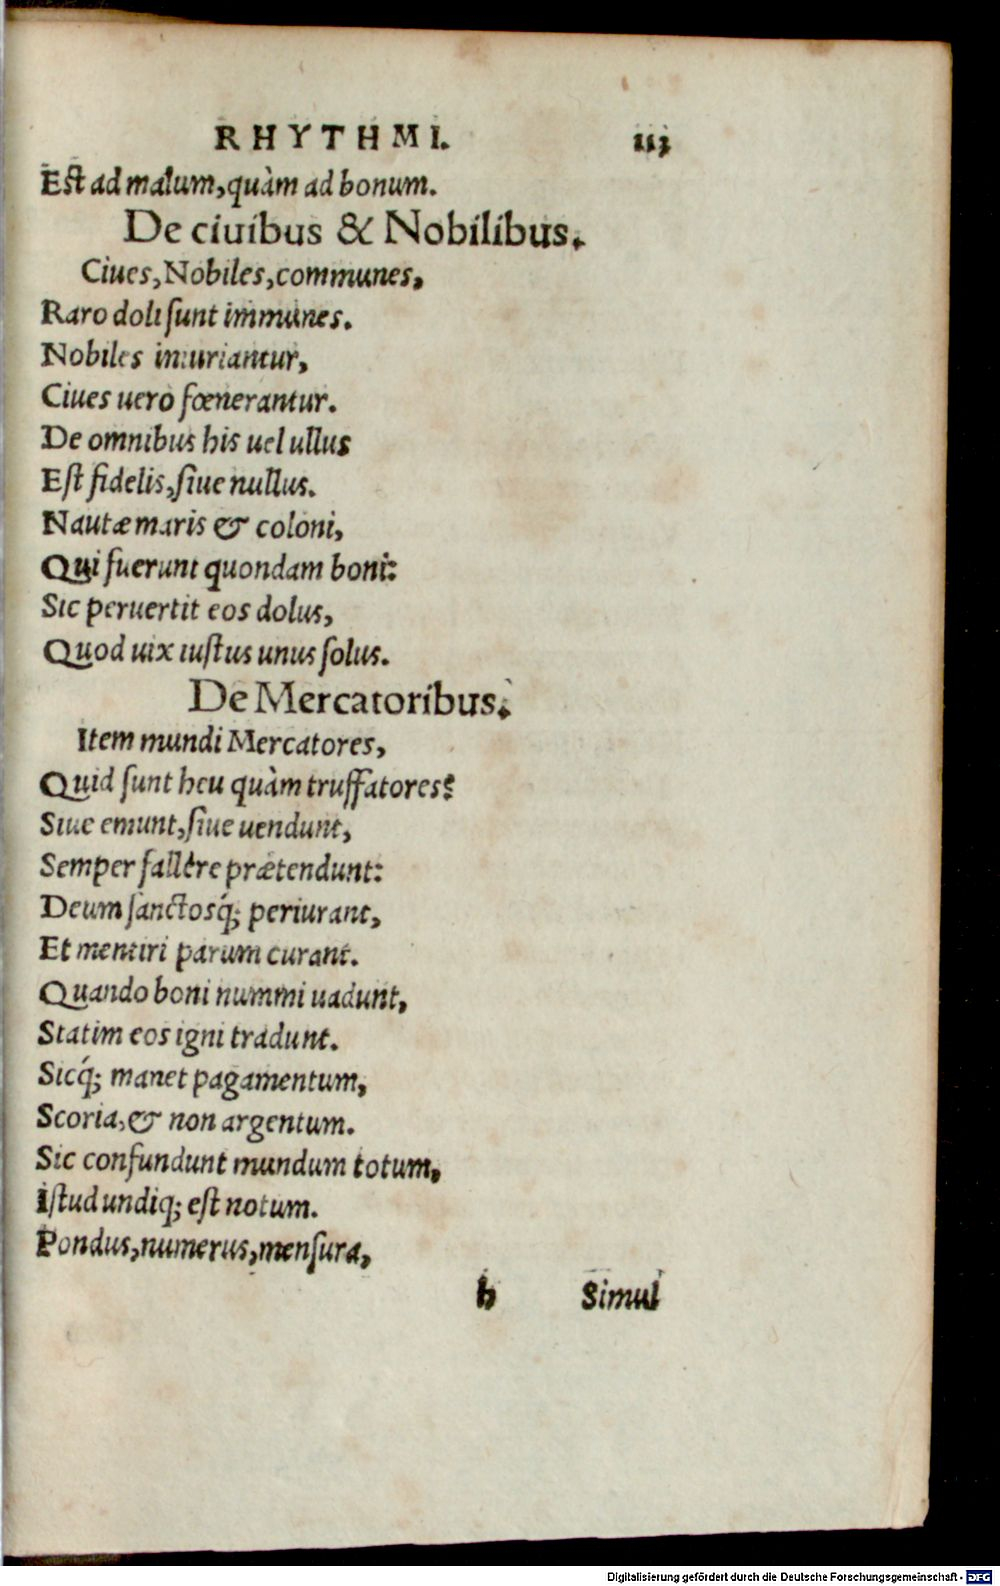 RHYTHMI. 113
Est ad malum, quàm ad bonum.
De ciuibus & Nobilibus.
Ciues, Nobiles, communes,
Raro doli sunt immunes.
Nobiles iniuriantur,
Ciues uero fœnerantur.
De omnibus his uel ullus
Est fidelis, siue nullus.
Nautæ maris & coloni,
Qui fuerunt quondam boni:
Sic peruertit eos dolus,
Quod uix iustus unus solus.
De Mercatoribus.
Item mundi Mercatores,
Quid sunt heu quàm truffatores?
Siue emunt, siue uendunt,
Semper fallere prætendunt:
Deum sanctosq́; periurant,
Et mentiri parum curant.
Quando boni nummi uadunt,
Statim eos igni tradunt.
Sicq́; manet pagamentum,
Scoria, & non argentum.
Sic confundunt mundum totum,
Istud undiq; est notum.
Pondus, numerus, mensura,
h Simul
Digitalisierung gefördert durch die Deutsche Forschungsgemeinschaft - DFG